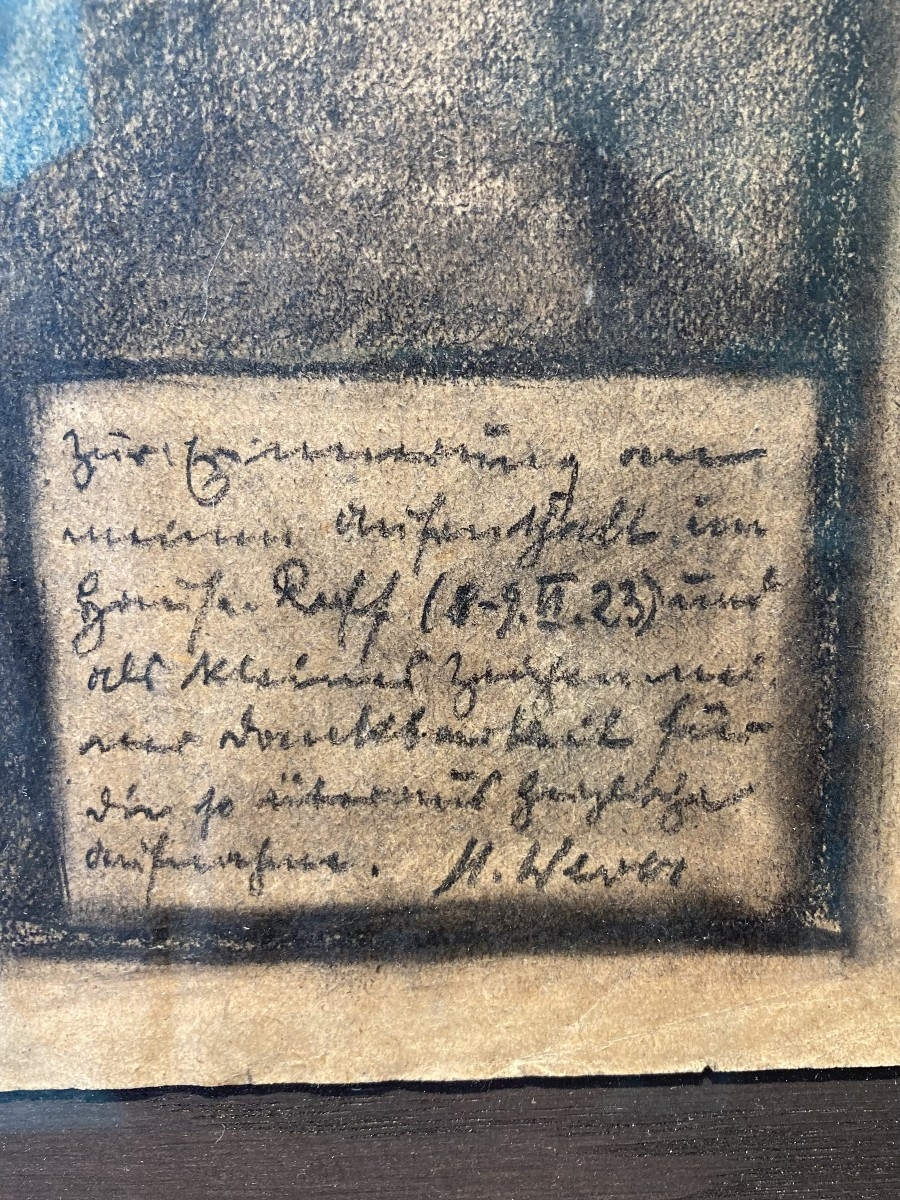 Zur Erinnerung an
meinen Aufenthalt im
Hause Raff (8-9.II.23) und
als kleines Zeichen mei-
ner Dankbarkeit für
die so überaus herzliche
Aufnahme. H. Wever